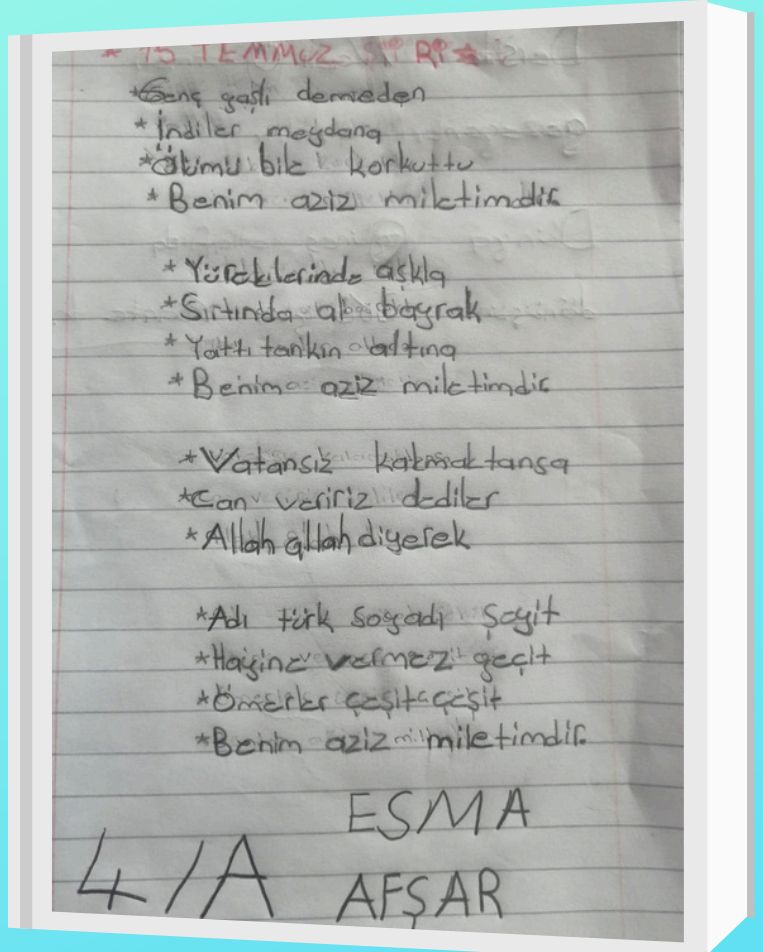 * 15 TEMMUZ ŞİİRİ *
*Genç yaşlı demeden
*İndiler meydana
*Ölümü bile korkuttu
*Benim aziz miletimdir.
*Yüreklerinde aşkla
*Sırtında al bayrak
*Yattı tankın altına
*Benim aziz miletimdir
*Vatansız kalmaktansa
*Can veririz dediler
*Allah allah diyerek
*Adı türk soyadı Şayit
*Hayine vermez geçit
*Ömerler çeşit çeşit
*Benim aziz miletimdir.
ESMA
4/A AFŞAR